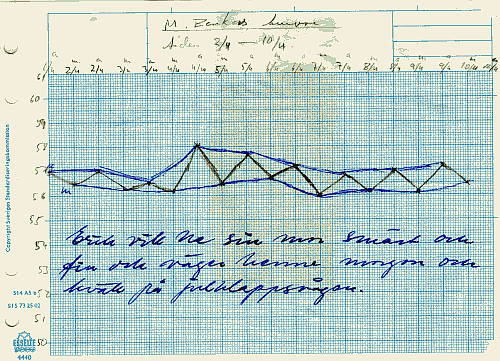 M. Zenkas kurva
tiden 2/4 — 10/4
a m a m a m a m a m a m a m a m a
1/4 2/4 2/4 3/4 3/4 4/4 4/4 5/4 5/4 6/4 6/4 7/4 7/4 8/4 8/4 9/4 9/4 10/4 10/4
61
60
59
58
57
56
55
54
53
52
51
50
a
m
Erik vill ha sin mor smärt och
fin och väger henne morgon och
kväll på julklappsvågen.
Copyright Sveriges Standardiseringskommission
514 A5 b
SIS 73 25 02
ESSELTE
4440